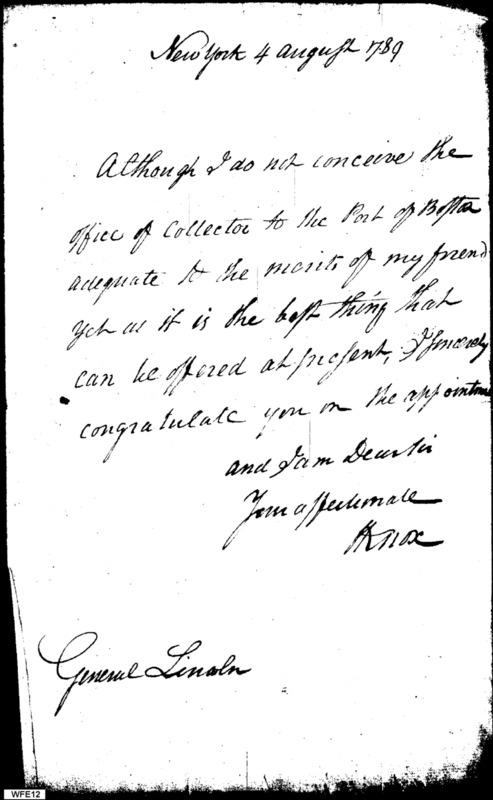 New York 4 August 1789
Although I do not conceive the
office of Collector to the Port of Boston
adequate to the merits of my friend
Yet as it is the best thing that
can be offered at present, I sincerely
congratulate you on the appointme
and I am Dear Sir
Your affectionate
HKnox
General Lincoln
WFE12